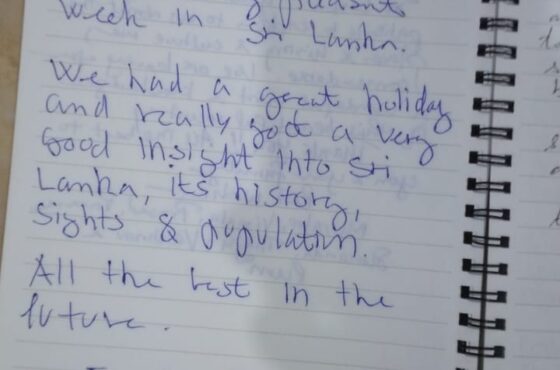 week in a pleasant
Sri Lanka.
We had a great holiday
and really got a very
good insight into Sri
Lanka, its history,
sights & population.
All the best in the
future.